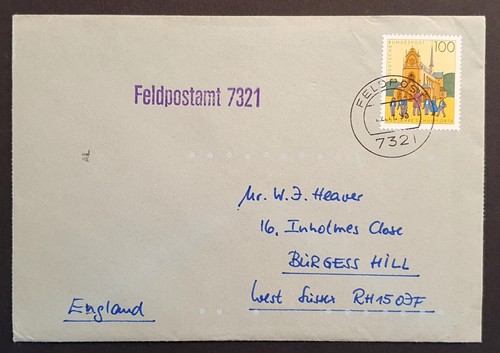 100
FELDPOST
7321
Feldpostamt 7321
AL
Mr. W.J. Heaver
16, Inholmes Close
BURGESS HILL
West Sussex RH15 0JF
England